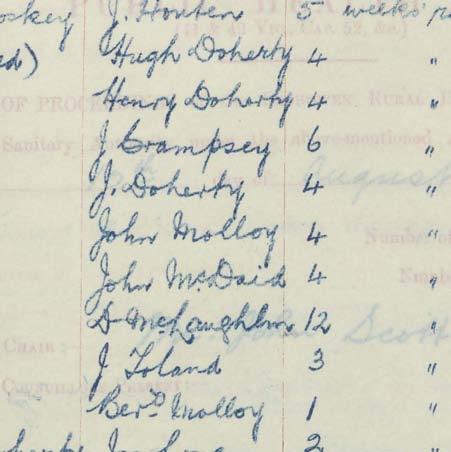 oskey J. Houten 5 weeks'
ed) Hugh Doherty 4 "
Henry Doherty 4 "
J Crampsey 6 "
J. Doherty 4 "
John Molloy 4 "
John McDaid 4 "
D McLaughlin 12 "
J Toland 3 "
Berd Molloy 1 "
2 "
OF PROCEE RURAL
Sanitary the above-mentioned
August
Number of
Numbe
John Scott
CHAIR :—
COUNCILL